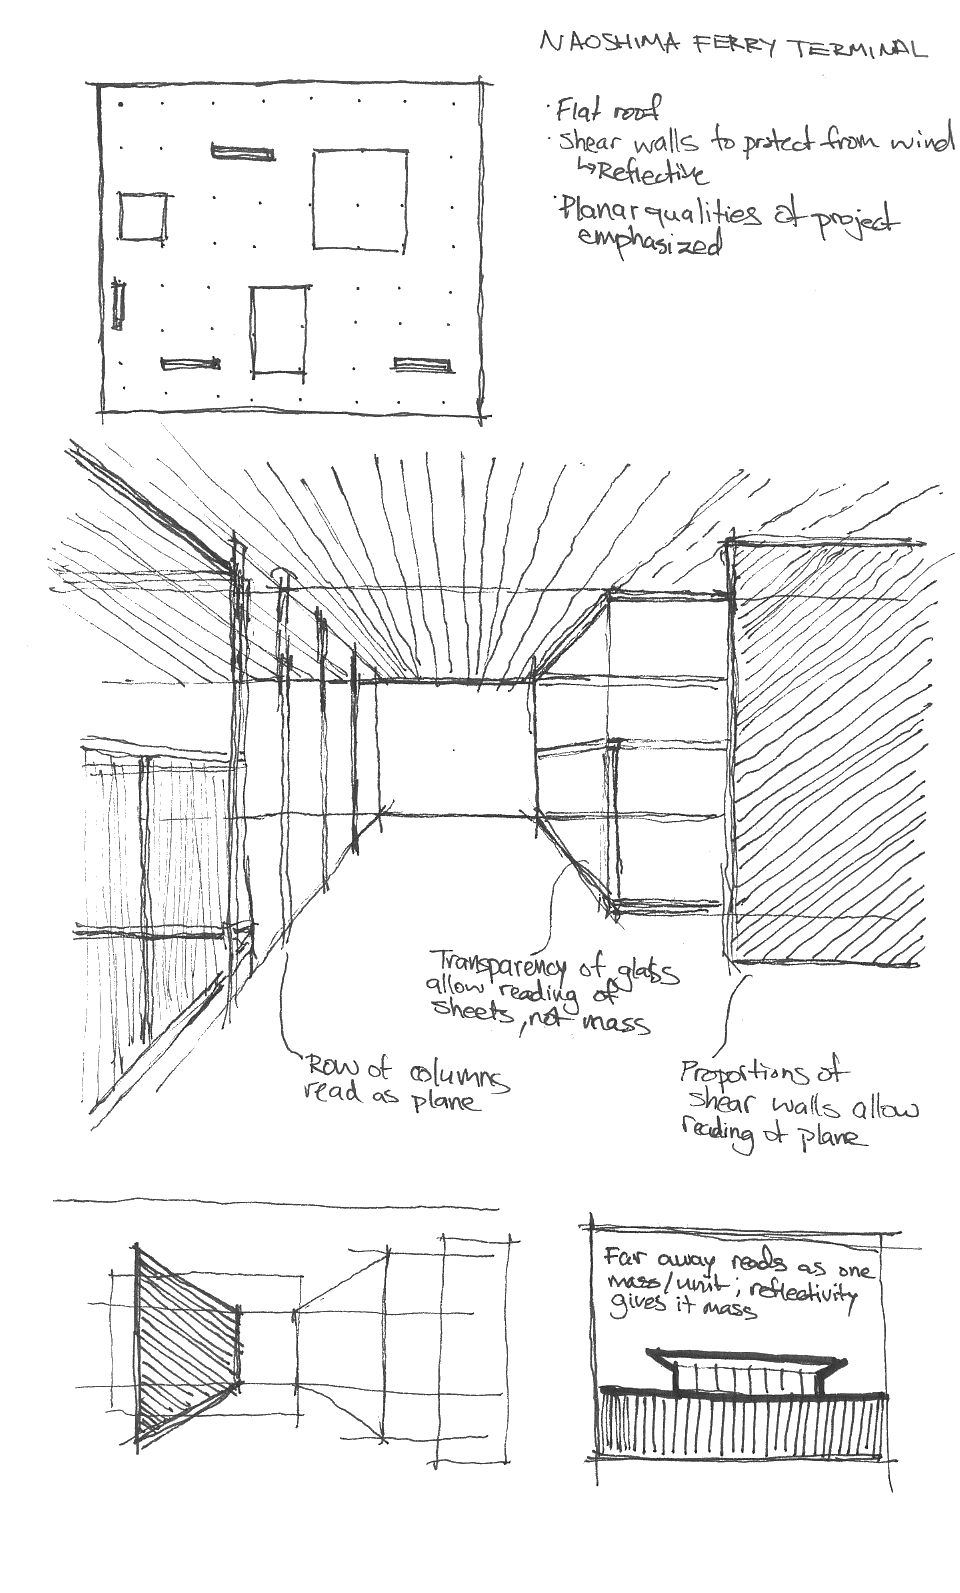 NAOSHIMA FERRY TERMINAL
· Flat roof
· Shear walls to protect from wind
↳ Reflective
· Planar qualities of project
emphasized
Transparency of glass
allow reading of
sheets, not mass
Row of columns
read as plane
Proportions of
shear walls allow
reading of plane
Far away reads as one
mass/unit; reflectivity
gives it mass